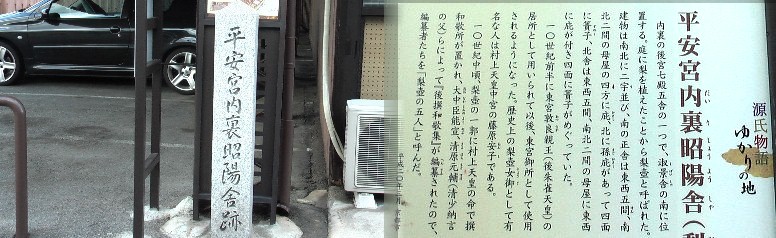 平安宮内裏昭陽舎跡
源氏物語
ゆかりの地
平安宮内裏昭陽舎(梨
だい り しょう よう しゃ
内裏の後宮七殿五舎の一つで、淑景舎の南に位
置する。庭に梨を植えたことから梨壺と呼ばれた。
建物は南北に二宇並び、南の正舎は東西五間、南
北二間の母屋の四方に庇、北に孫庇があって四面
に簀子、北舎は東西五間、南北二間の母屋に東西
に庇が付き四面に簀子がめぐっていた。
一〇世紀前半に東宮敦良親王(後朱雀天皇)の
居所として用いられて以後、東宮御所として使用
されるようになった。歴史上の梨壺女御として有
名な人は村上天皇中宮の藤原安子である。
一〇世紀中頃、梨壺の一郭に村上天皇の命で撰
和歌所が置かれ、大中臣能宣、清原元輔(清少納言
の父)らによって『後撰和歌集』が編纂されたので、
編纂者たちを「梨壺の五人」と呼んだ。
平成二〇年三月 京都市